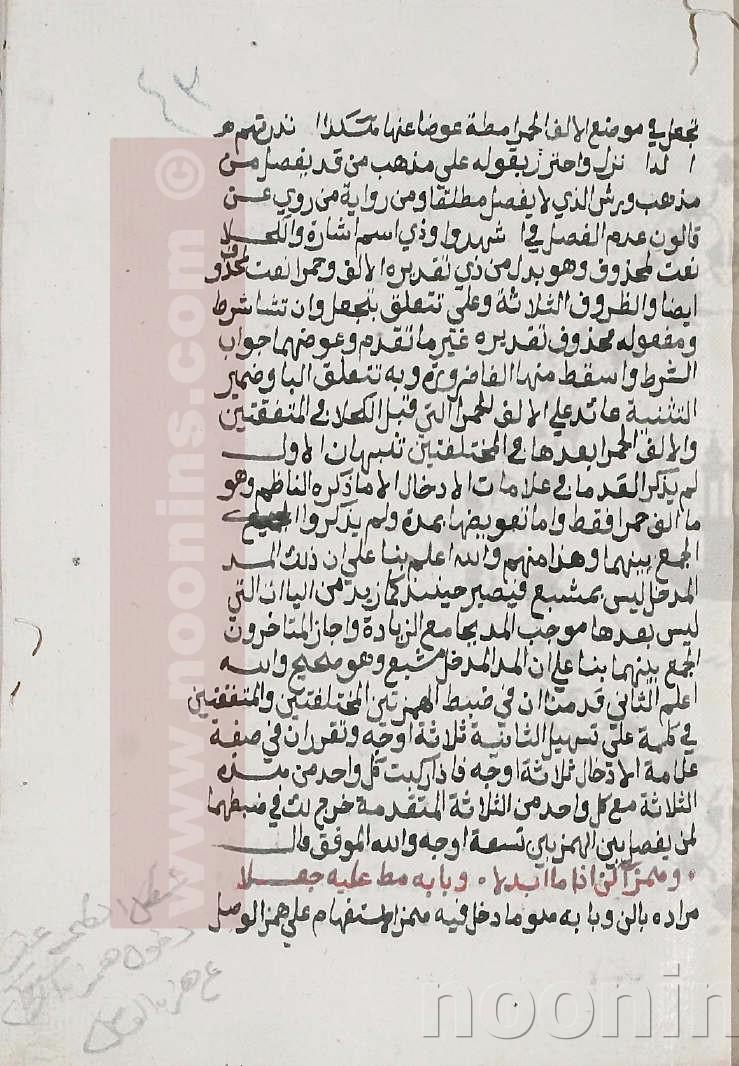 تجعل في موضع الالف الحمرا مطة عوضا عنها هكذا ءاندرتهم
ءالد انزل واحترز بقوله علي مذهب من قد يفصل من
مذهب ورش الذي لا يفصل مطلقا ومن رواية من روي عن
قالون عدم الفصل في اشهدوا وذي اسم اشارة والكحلا
نعت لمحذوف وهو بدل من ذي تقديره الالف وحمرا نعت لمحذوف
ايضا والظروف الثلاثة وعلي تتعلق بتجعل وان تشا شرط
ومفعوله محذوف تقديره غير ما تقدم وعوضهما جواب
الشرط واسقط منها الفا ضرورة وبه تتعلق البا وضمير
التثنية عائد علي الالف الحمرا التي قبل الكحلا في المتفقتين
والالف الحمرا بعدها في المختلفتين تنبيهان الاول
لم يذكر القدما في علامات الادخال الا ما ذكره الناظم وهو
ما الف حمرا فقط واما تعويضها بمدة ولم يذكروا
الجمع بينهما وهذا منهم والله اعلم بنا علي ان ذلك المد
المدخل ليس بمشبع فيصير حينئذ كما زيد من الياات التي
ليس بعدها موجب المد بجامع الزيادة واجاز المتاخرون
الجمع بينهما بنا علي ان المد المدخل مشبع وهو صحيح والله
اعلم الثاني قدمنا ان في ضبط الهمزتين المختلفتين والمتفقتين
في كلمة علي تسهيل الثانية ثلاثة اوجه وتقرر ان في صفة
علامة الادخال ثلاثة اوجه فاذا ركبت كل واحد من هذه
الثلاثة مع كل واحد من الثلاثة المتقدمة خرج لك في ضبطهما
لمن يفصل بين الهمزتين تسعة اوجه والله الموفق قال
وهمز آلن اذا ما ابدلا • وبابه مط عليه جعلا
مراده بالن وبابه هو ما دخل فيه همز الاستفهام علي همز الوصل
دخول همز
© www.noonins.com
noonin